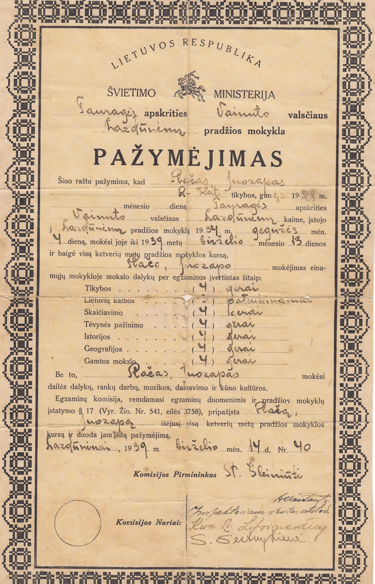 LIETUVOS RESPUBLIKA
ŠVIETIMO MINISTERIJA
Tauragės apskrities Vainuto valsčiaus
Lazdūnėnų pradžios mokykla
PAŽYMĖJIMAS
Šiuo raštu pažymima, kad Juozapas
R-Kat. tikybos, gim. 19
mėnesio dieną Tauragės apskrities
Vainuto valsčiaus Lazdūnėnų kaime, įstojo
į Lazdūnėnų pradžios mokyklą 19 gegužės mėn.
dieną, mokėsi joje iki 1939 metų birželio 13 dienos
ir baigė visą ketverių metų pradžios mokyklos kursą.
Juozapo mokėjimas eina-
mųjų mokykloje mokslo dalykų per egzaminus įvertintas šitaip:
Tikybos (4) gerai
Lietuvių kalbos patenkinamai
Skaičiavimo (4) Gerai
Tėvynės pažinimo (4) gerai
Istorijos (4) gerai
Geografijos (4) Gerai
Gamtos mokslo (4) Gerai
Be to, Juozapas mokėsi
dailės dalykų, rankų darbų, muzikos, dainavimo ir kūno kultūros.
Egzaminų komisija, remdamasi egzaminų duomenimis ir pradžios mokyklų
įstatymo § 17 (Vyr. Žin. Nr. 541, eilės 3758), pripažįsta
Juozapą išėjusį visą ketverių metų pradžios mokyklos
kursą ir duoda jam šitą pažymėjimą.
1939 m. birželio mėn. 14 d. Nr. 40
Komisijos Pirmininkas
Komisijos Nariai: